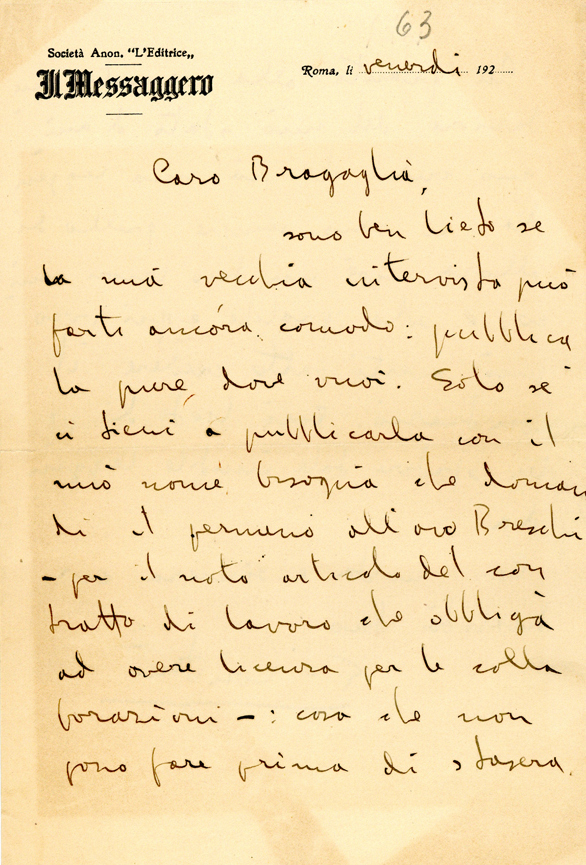 63
Società Anon. "L'Editrice„
Il Messaggero
Roma, li venerdi 192
Caro Bragaglia,
sono ben lieto se
la mia vecchia intervista può
farti ancóra comodo: pubblica
la pure, dove vuoi. Solo se
ci tieni a pubblicarla con il
mio nome bisogna che doman
di il permesso all'avv Breschi
- per il noto articolo del con
tratto di lavoro che obbliga
ad avere licenza per le colla
borazioni - : cosa che non
posso fare prima di stasera.